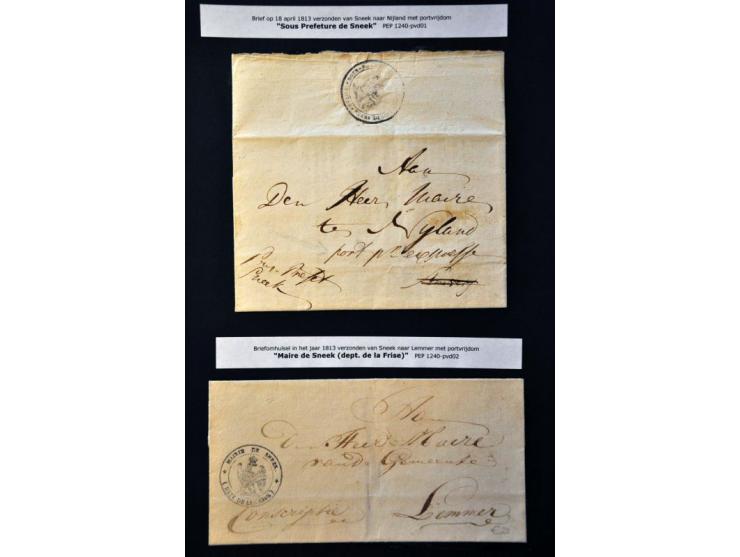 Brief op 18 april 1813 verzonden van Sneek naar Nijland met portvrijdom
"Sous Prefeture de Sneek" PEP 1240-pvd01
Aan
Den Heer Maire
te Nyland
port
Sneek
Briefomhulsel in het jaar 1813 verzonden van Sneek naar Lemmer met portvrijdom
"Maire de Sneek (dept. de la Frise)" PEP 1240-pvd02
Aan
Den Heer Maire
van de Gemeente
MAIRIE DE SNEEK
Conscriptie
Lemmer